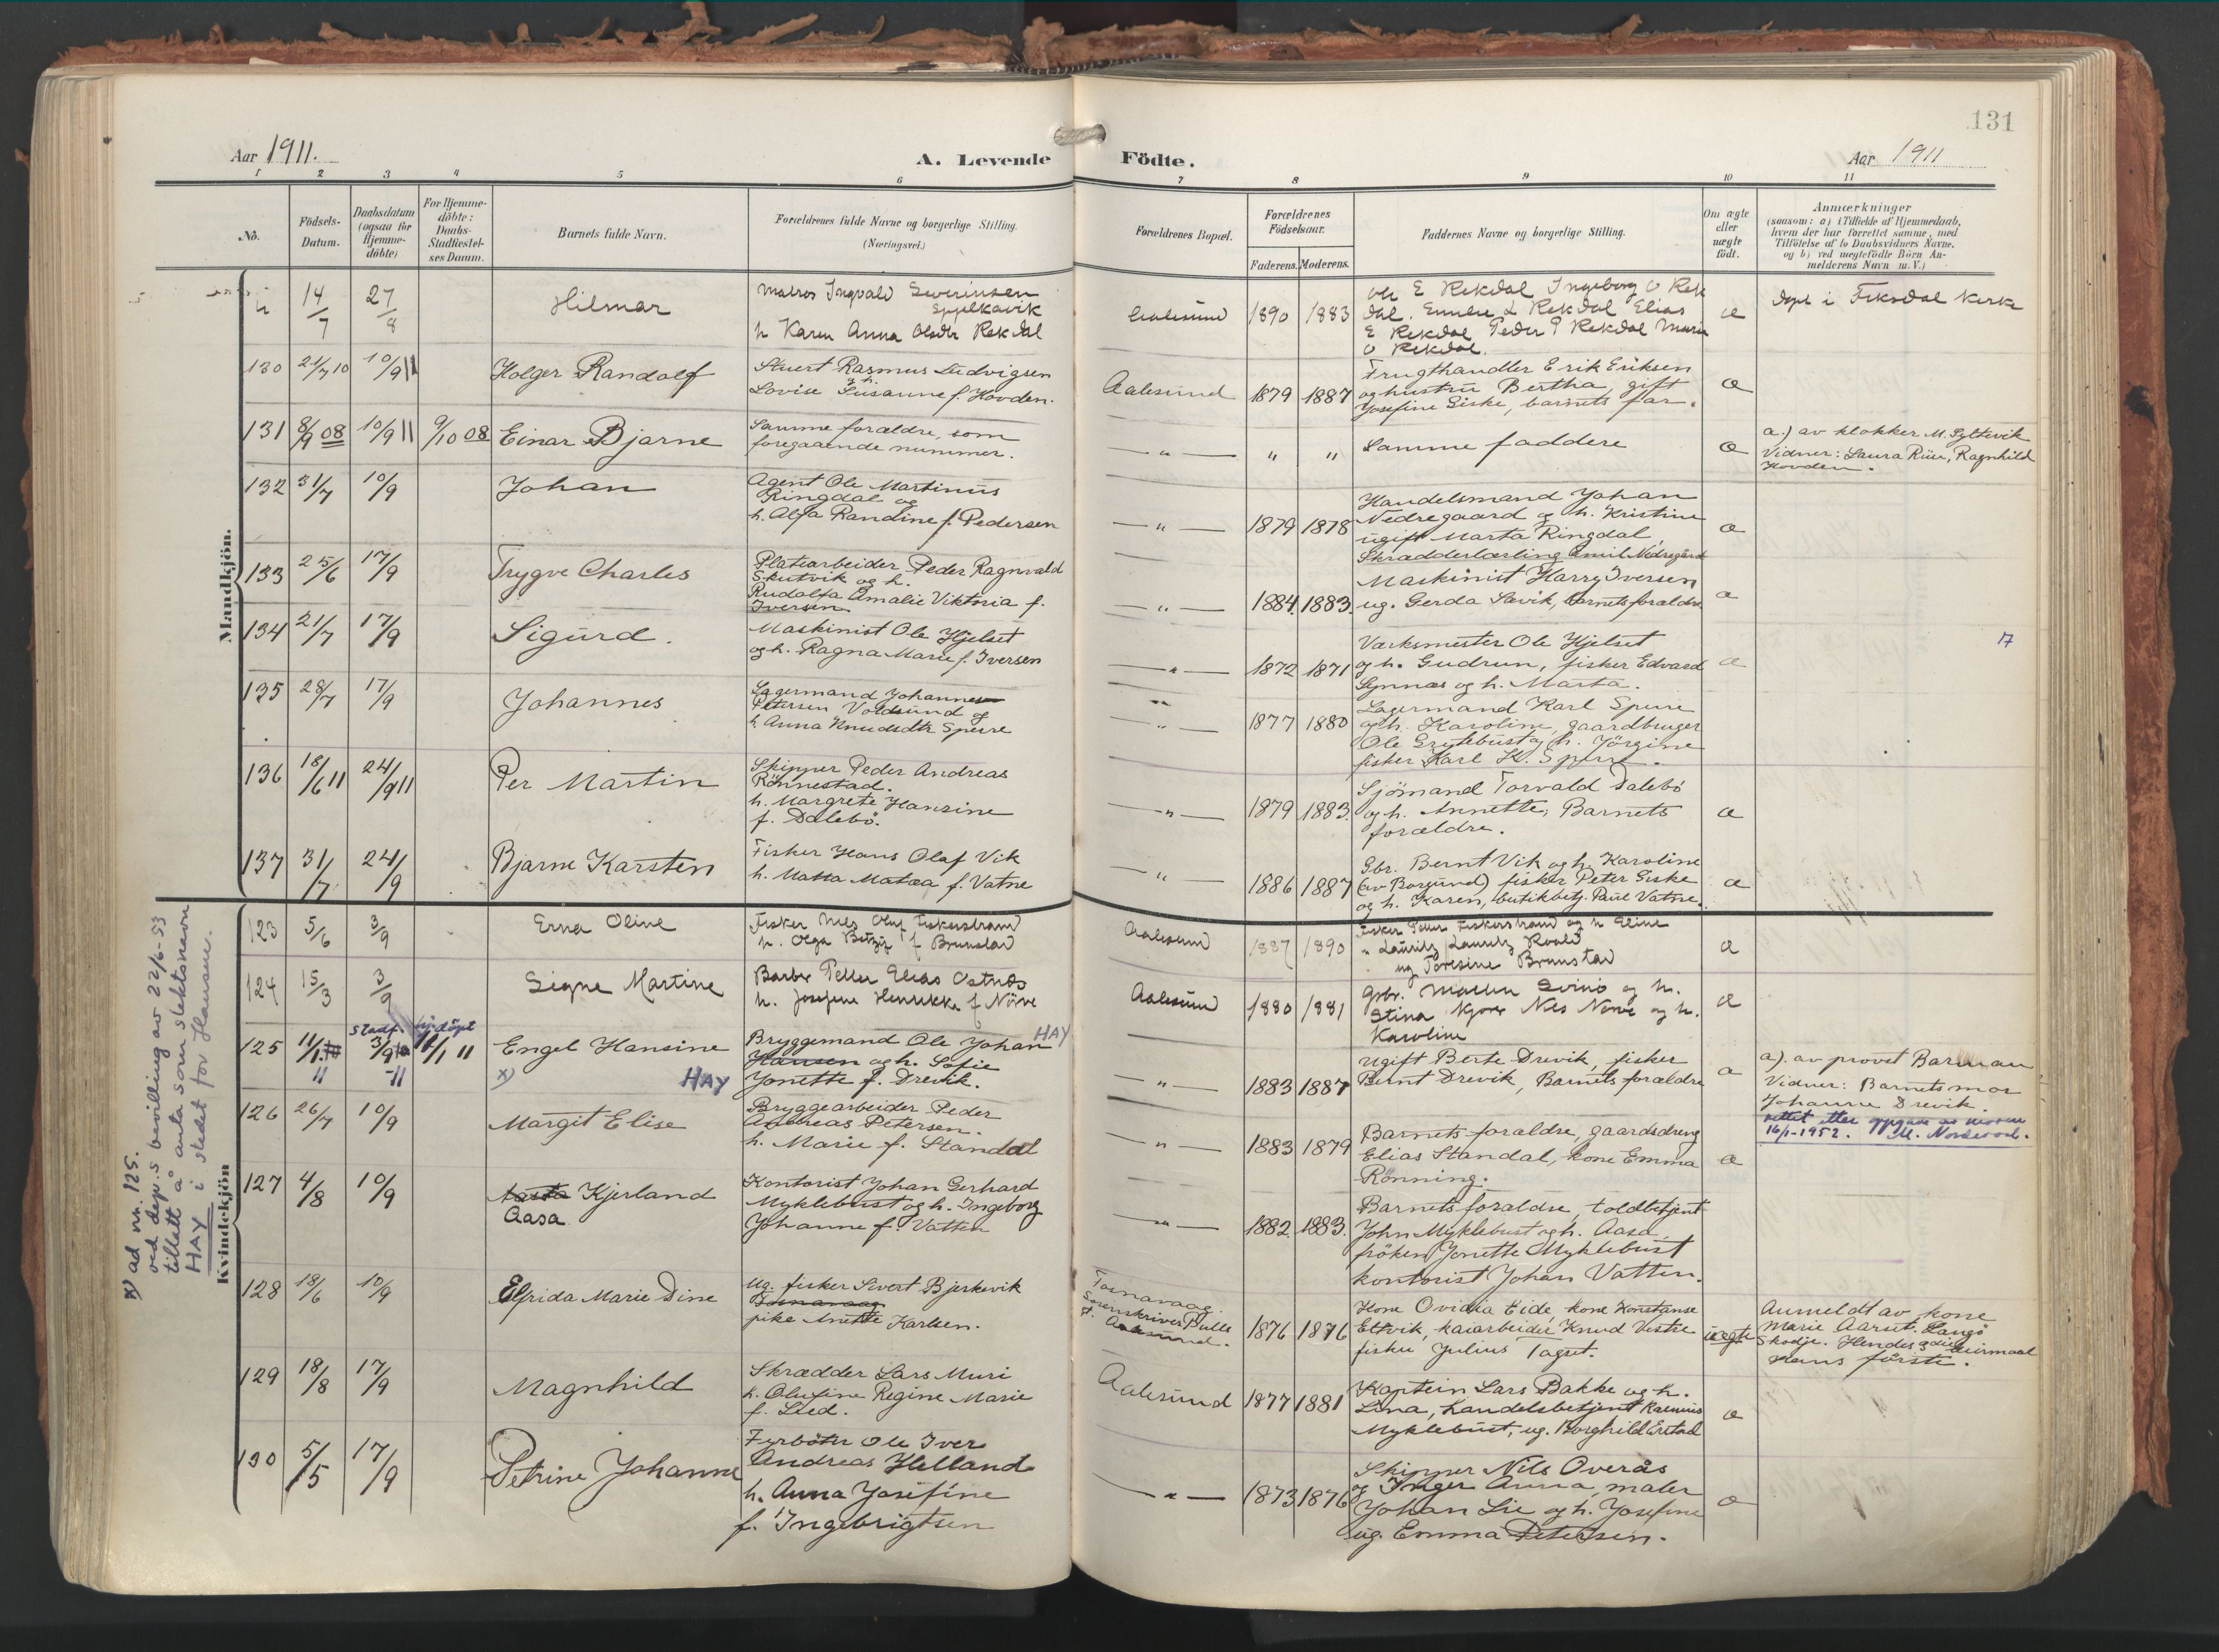 131
Aar 1911.
A. Levende
Födte.
Aar 1911
1 2 3 4 5 6 7 8 9 10 11
No.
Födsels-
Datum.
Daabsdatum
(ogsaa for
Hjemme-
döbte)
For Hjemme-
döbte:
Daabs-
Stadfæstel-
ses Datum.
Barnets fulde Navn.
Forældrenes fulde Navne og borgerlige Stilling.
(Næringsvei.)
Forældrenes Bopæl.
Forældrenes
Födselsaar.
Faderens. Moderens.
Faddernes Navne og borgerlige Stilling.
Om ægte
eller
uægte
födt.
Anmærkninger
(saasom: a) i Tilfælde af Hjemmedaab,
hvem der har forrettet samme, med
Tilföielse af to Daabsvidners Navne.
og b) ved uægtefödte Börn An-
melderens Navn m. V.)
Mandkjön.
14/7 27/8 Hilmar
Matros Ingvald Severinsen
Spjelkavik
h Karen Anna Olsdtr Rekdal
Aalesund 1890 1883
Ole E Rekdal Ingeborg O Rek
dal. L Rekdal Elias
E Rekdal Peder P Rekdal Marie
O Rekdal.
æ
Døpt i Fiksdal kirke
130 21/7 10 10/9 11 Holger Randolf
Stuert Rasmus Ludvigsen
og h.
Lovise Susanne f. Hovden.
Aalesund 1879 1887
Frugthandler Erik Eriksen
og hustru Bertha, gift
Josefine Giske, barnets far.
æ
131 8/9 08 10/9 11 9/10 08 Einar Bjarne
Samme forældre, som
foregaaende nummer.
— " — " "
Samme faddere
æ
a.) av klokker M. Syltevik
Vidner: Laura Riise, Ragnhild
Hovden.
132 31/7 10/9 Johan
Agent Ole Martinus
Ringdal og
h. Alfa Randine f. Pedersen
— " — 1879 1878
Handelsmand Johan
Nedregaard og h. Kristine
ugift Marta Ringdal,
Skrædderlærling Emil Nedregård
æ
133 25/6 17/9 Trygve Charles
Platearbeider Peder Ragnvald
Skutvik og h.
Rudolfa Amalie Viktoria f.
Iversen
— " — 1884. 1883.
Maskinist Harry Iversen
ug. Gerda Sævik, barnets forældre
æ
134 21/7 17/9 Sigurd.
Maskinist Ole Hjelset
og h. Ragna Marie f. Iversen
— " — 1872 1871
Værksmester Ole Hjelset
og h. Gudrun, fisker Edvard
Synnæs og h. Marta.
æ
17
135 28/7 17/9 Johannes
Lagermand Johannes
Petersen Voldsund og
h. Anna Knudsdtr Sperre
— " — 1877 1880
Lagermand Karl Sperre
og h. Karoline, gaardbruger
Ole Grytebust og h. Jörgine
fisker Karl K. Sperre.
136 18/6 11 24/9 11 Per Martin
Skipper Peder Andreas
Rönnestad.
h. Margrete Hansine
f. Dalebö.
— " — 1879 1883.
Sjömand Torvald Dalebö
og h. Annette, Barnets
forældre.
æ
137 31/7 24/9 Bjarne Karsten
Fisker Hans Olaf Vik
h. Matea f. Vatne
— " — 1886 1887
Gbr. Bernt Vik og h. Karoline
(av Borgund) fisker Peter Giske
og h. Karen, butikbetj. Paul Vatne.
æ
Kvindekjön
123 5/6 3/9 Erna Oline
Fisker Nils Oluf Fiskerstrand
h. Olga f Brunstad
Aalesund 1887 1890
Fisker Peter Fiskerstrand og h Eline
" Lauritz Lauritz Roald
ug Toresine Brunstad
æ
124 15/3 3/9 Signe Martine
Barber Petter Elias Ostnes
h. Josefine Henrikke f Nörve
Aalesund 1880 1881
Gbr. Svinö og h.
Stina Nils Nörve og h.
Karoline
æ
125 11/1 11 stadf. 3/9 -11 hj.döpt 11/1 11 Engel Hansine
x) HAY
Bryggemand Ole Johan HAY
Hansen og h. Sofie
Jonette f. Drevik.
— " — 1883 1887
Ugift Berte Drevik, fisker
Bernt Drevik, Barnets forældre
æ
a). av provst Barman
Vidner: Barnets mor
Johanne Drevik.
rettet etter oppgave av moren
16/1-1952. M. Nordsund.
126 26/7 10/9 Margit Elise
Bryggearbeider Peder
Andreas Petersen.
h. Marie f. Standal
" 1883 1879
Barnets forældre, gaardsdreng
Elias Standal, kone Emma
Rönning.
æ
127 4/8 10/9 Aasta Kjerland
Aasa
Kontorist Johan Gerhard
Myklebust og h. Ingeborg
Johanne f. Vatten
— " — 1882. 1883.
Barnets forældre, toldbetjent
John Myklebust og h. Aasa
fröken Jonette Myklebust
kontorist Johan Vatten.
128 18/6 10/9 Elfrida Marie Dine
Ug. fisker Sivert Bjerkevik
Fosnavaag
pike Anette Karlsen.
Fosnavaag.
Sorenskriver Bulls
gt. Aalesund.
1876 1876
Kone Ovidia Eide, kone Konstanse
Eltvik, kaiarbeider Knud Vestre
fisker Julius
uægte
Anmeldt av kone
Marie Aarset. Langö
Skodje. Hendes 2die leiermaal
Hans förste.
129 18/8 17/9 Magnhild
Skrædder Lars Muri
h. Olufine Regine Marie
f. Lied.
Aalesund 1877 1881
Kaptein Lars Bakke og h.
Lina, handelsbetjent Rasmus
Myklebust, ug. Borghild Erstad
æ
130 5/5 17/9 Petrine Johanne
Fyrböter Ole Iver
Andreas Helland
h. Anna Josefine
f. Ingebrigtsen
— " — 1873 1876
Skipper Nils Överås
og Inger Anna, maler
Johan Lie og h. Josefine
ug. Emma Petersen.
æ
x) ad nr. 125.
ved dep.s bevilling av 22/6-53
tillatt å anta som slektsnavn
HAY i stedet for Hansen.